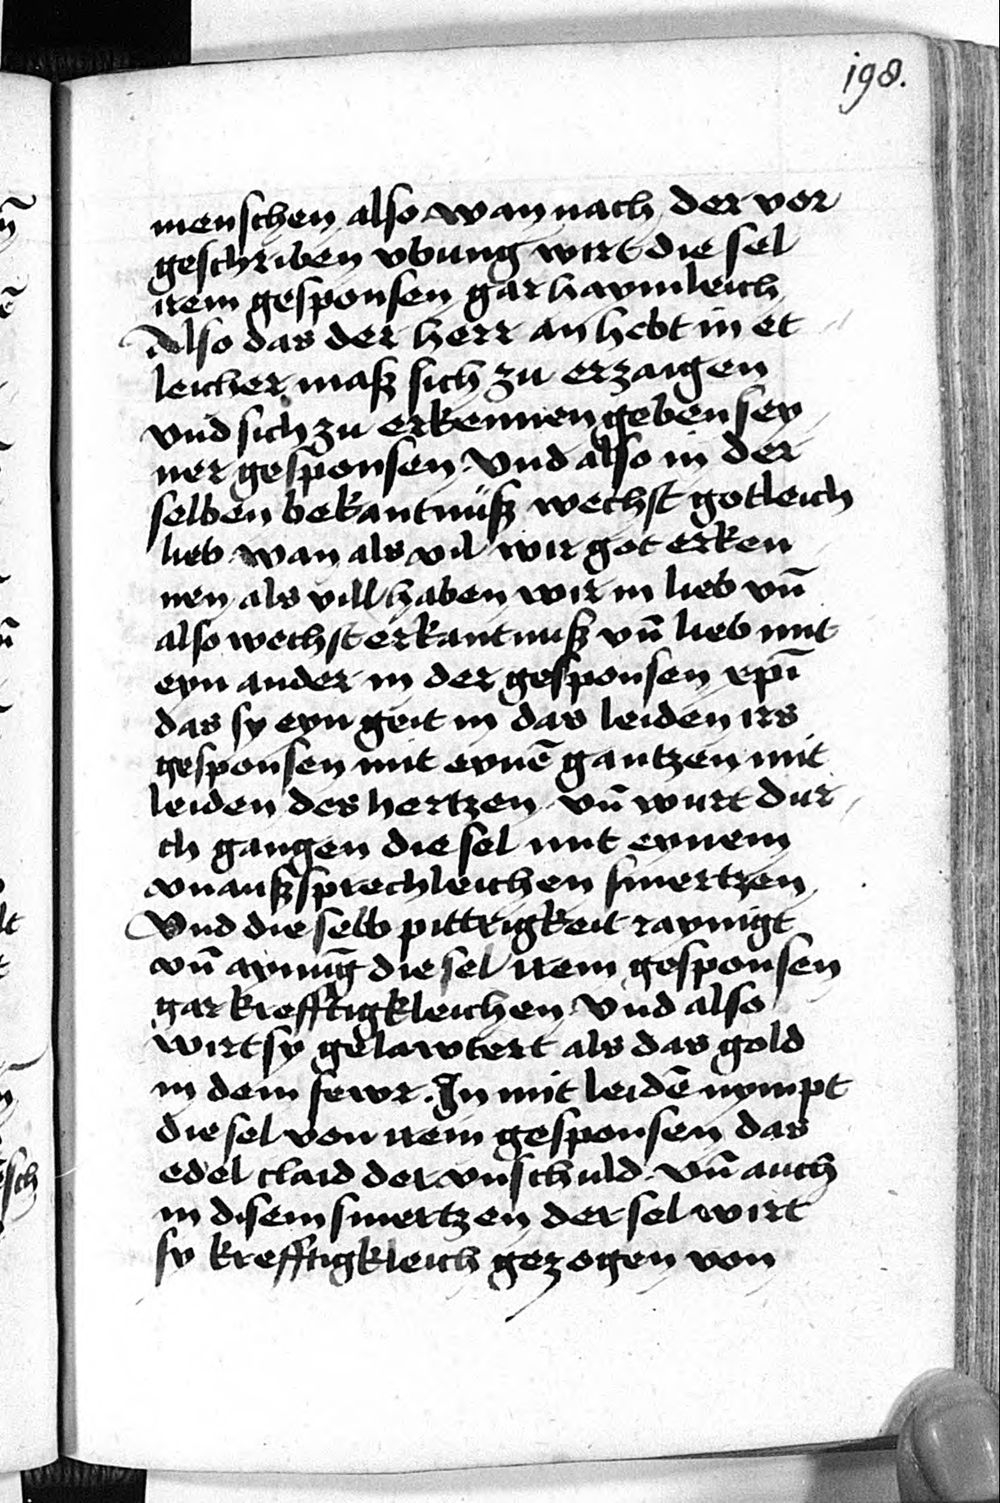 198.
menschen also wan nach der vor
geschriben vbung wirt die sel
irem gesponsen gar haymleich
Also das der herr an hebt in et
leicher masz sich zu erzaigen
vnd sich zu erkennen geben sey
ner gesponsen. Vnd also in der
selben bekantnüsz wechst gotleich
lieb wan als vil wir got erken
nen als vill haben wir in lieb vn̄
also wechst erkantnusz vn̄ lieb mit
eyn ander in der gesponsen xpī
das sy eyn geit in das leiden irs
gesponsen mit eynē gantzen mit
leiden des hertzen. vn̄ wurt dur
ch gangen die sel mit eynem
vnauszsprechleichen smertzen
Vnd die selb pittrigkeit raynigt
vn̄ aynīg die sel irem gesponsen
gar krefftigkleichen Vnd also
wirt sy gelawtert als das gold
in dem fewr. In mit leidē nympt
die sel von irem gesponsen das
edel claid der vnschuld. vn̄ auch
in disem smertzen der sel wirt
sy krefftigkleich gezogen von